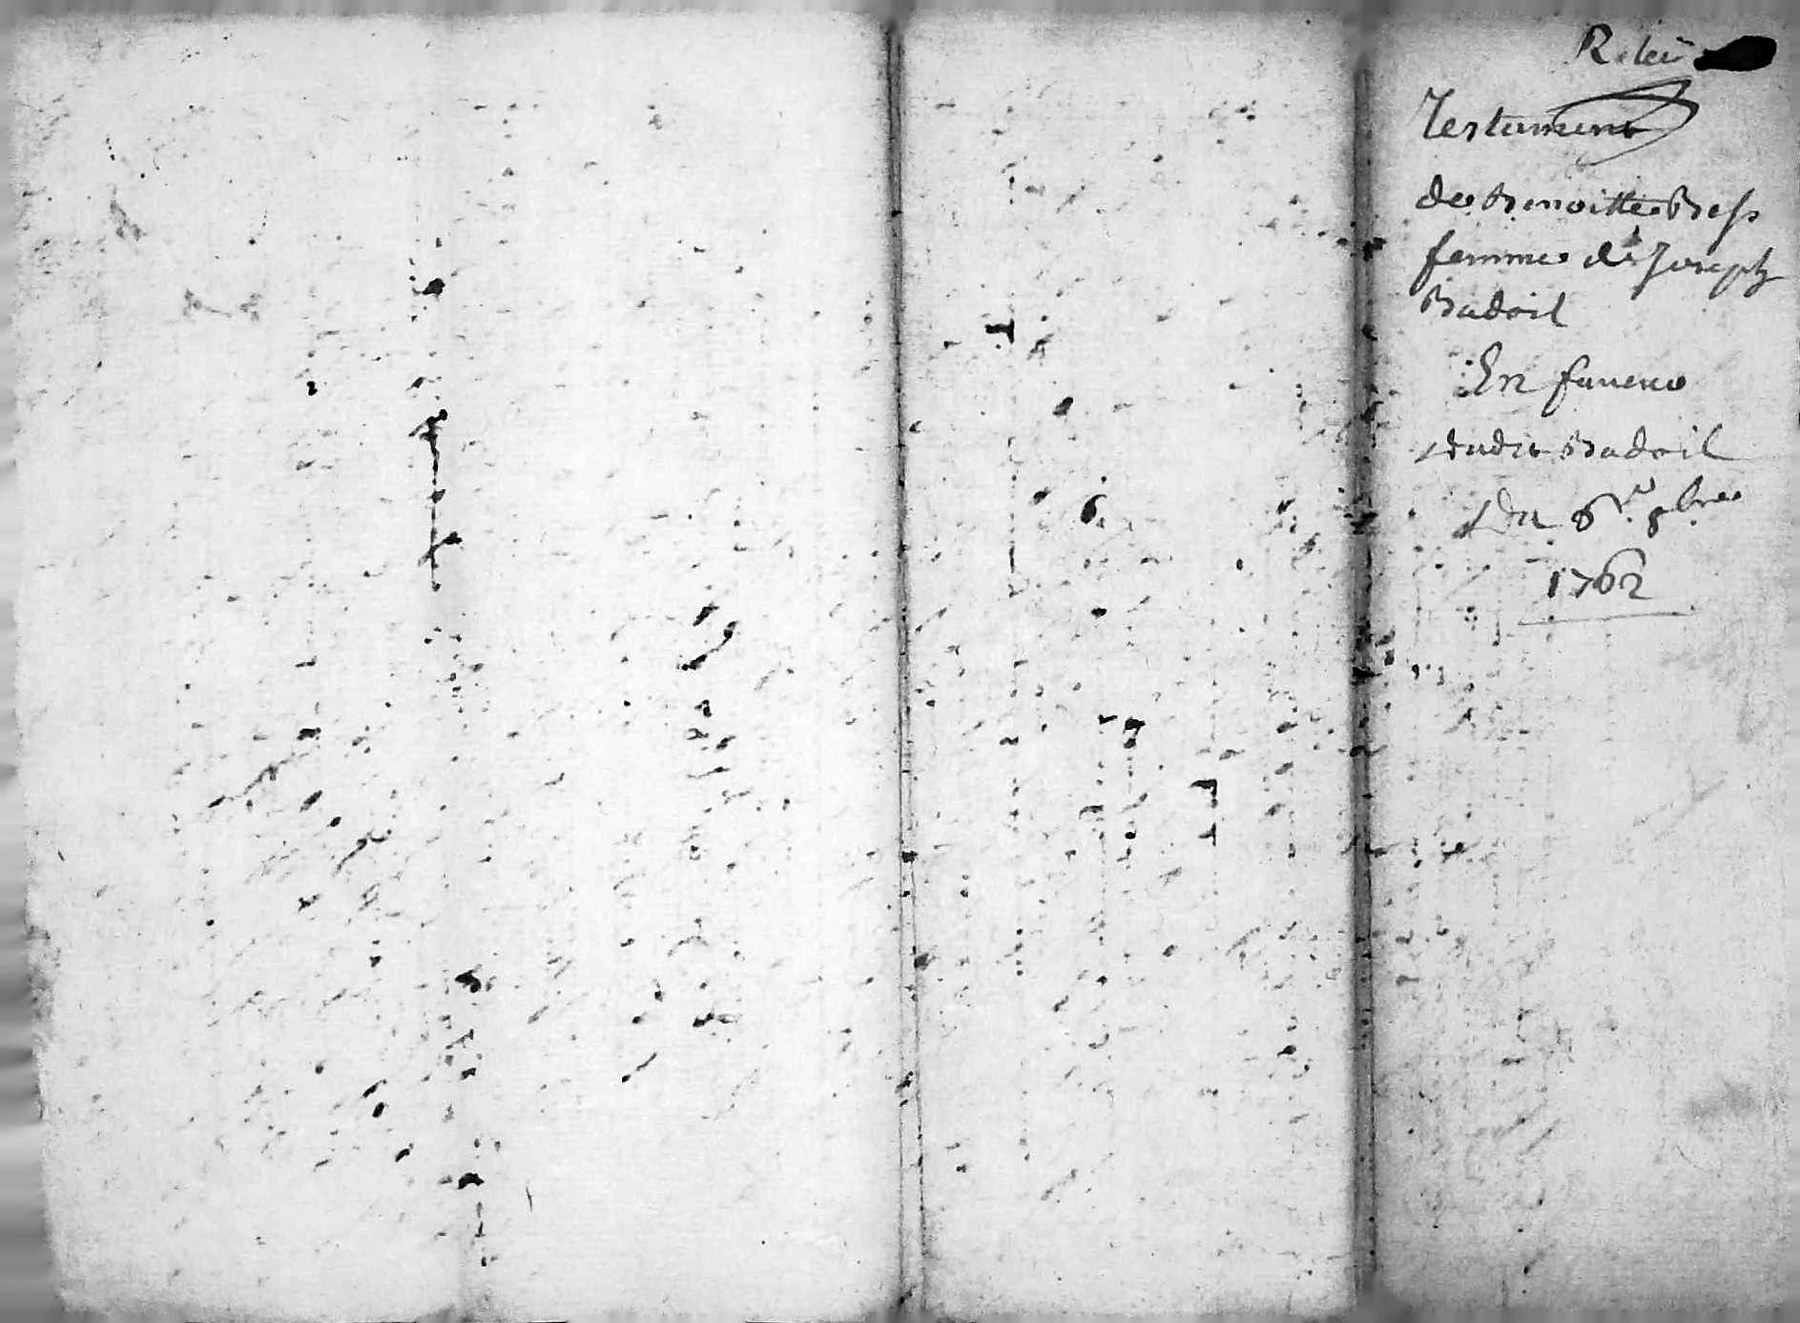 Testament
de Benoitte Bess
femme de Joseph
Badoil
En faueur
dudit Badoil
Du 6e 8bre
1762